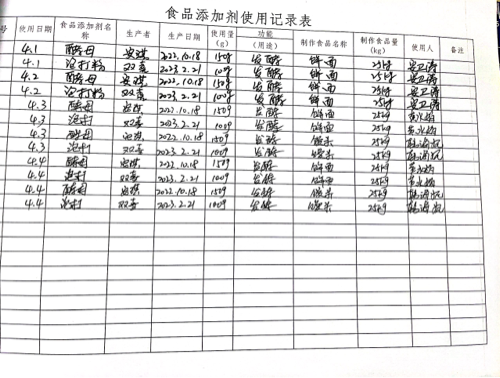 食品添加剂使用记录表
号 使用日期 食品添加剂名称 生产者 生产日期 使用量(g) 功能(用途) 制作食品名称 制作食品量(kg) 使用人 备注
4.1 酵母 安琪 2022.10.18 150g 发酵 饼面 25kg 安卫清
4.1 泡打粉 双喜 2023.2.21 100g 发酵 饼面 25kg 安卫清
4.2 酵母 安琪 2022.10.18 150g 发酵 饼面 25kg 安卫清
4.2 泡打粉 双喜 2023.2.21 100g 发酵 饼面 25kg 安卫清
4.3 酵母 安琪 2022.10.18 150g 发酵 饼面 25kg
4.3 泡打 双喜 2023.2.21 100g 发酵 饼面 25kg
4.3 酵母 安琪 2022.10.18 150g 发酵 馒头 25kg
4.3 泡打 双喜 2023.2.21 100g 发酵 馒头 25kg
4.4 酵母 安琪 2022.10.18 150g 发酵 饼面 25kg
4.4 泡打 双喜 2023.2.21 100g 发酵 饼面 25kg
4.4 酵母 安琪 2022.10.18 150g 发酵 馒头 25kg
4.4 泡打 双喜 2023.2.21 100g 发酵 馒头 25kg